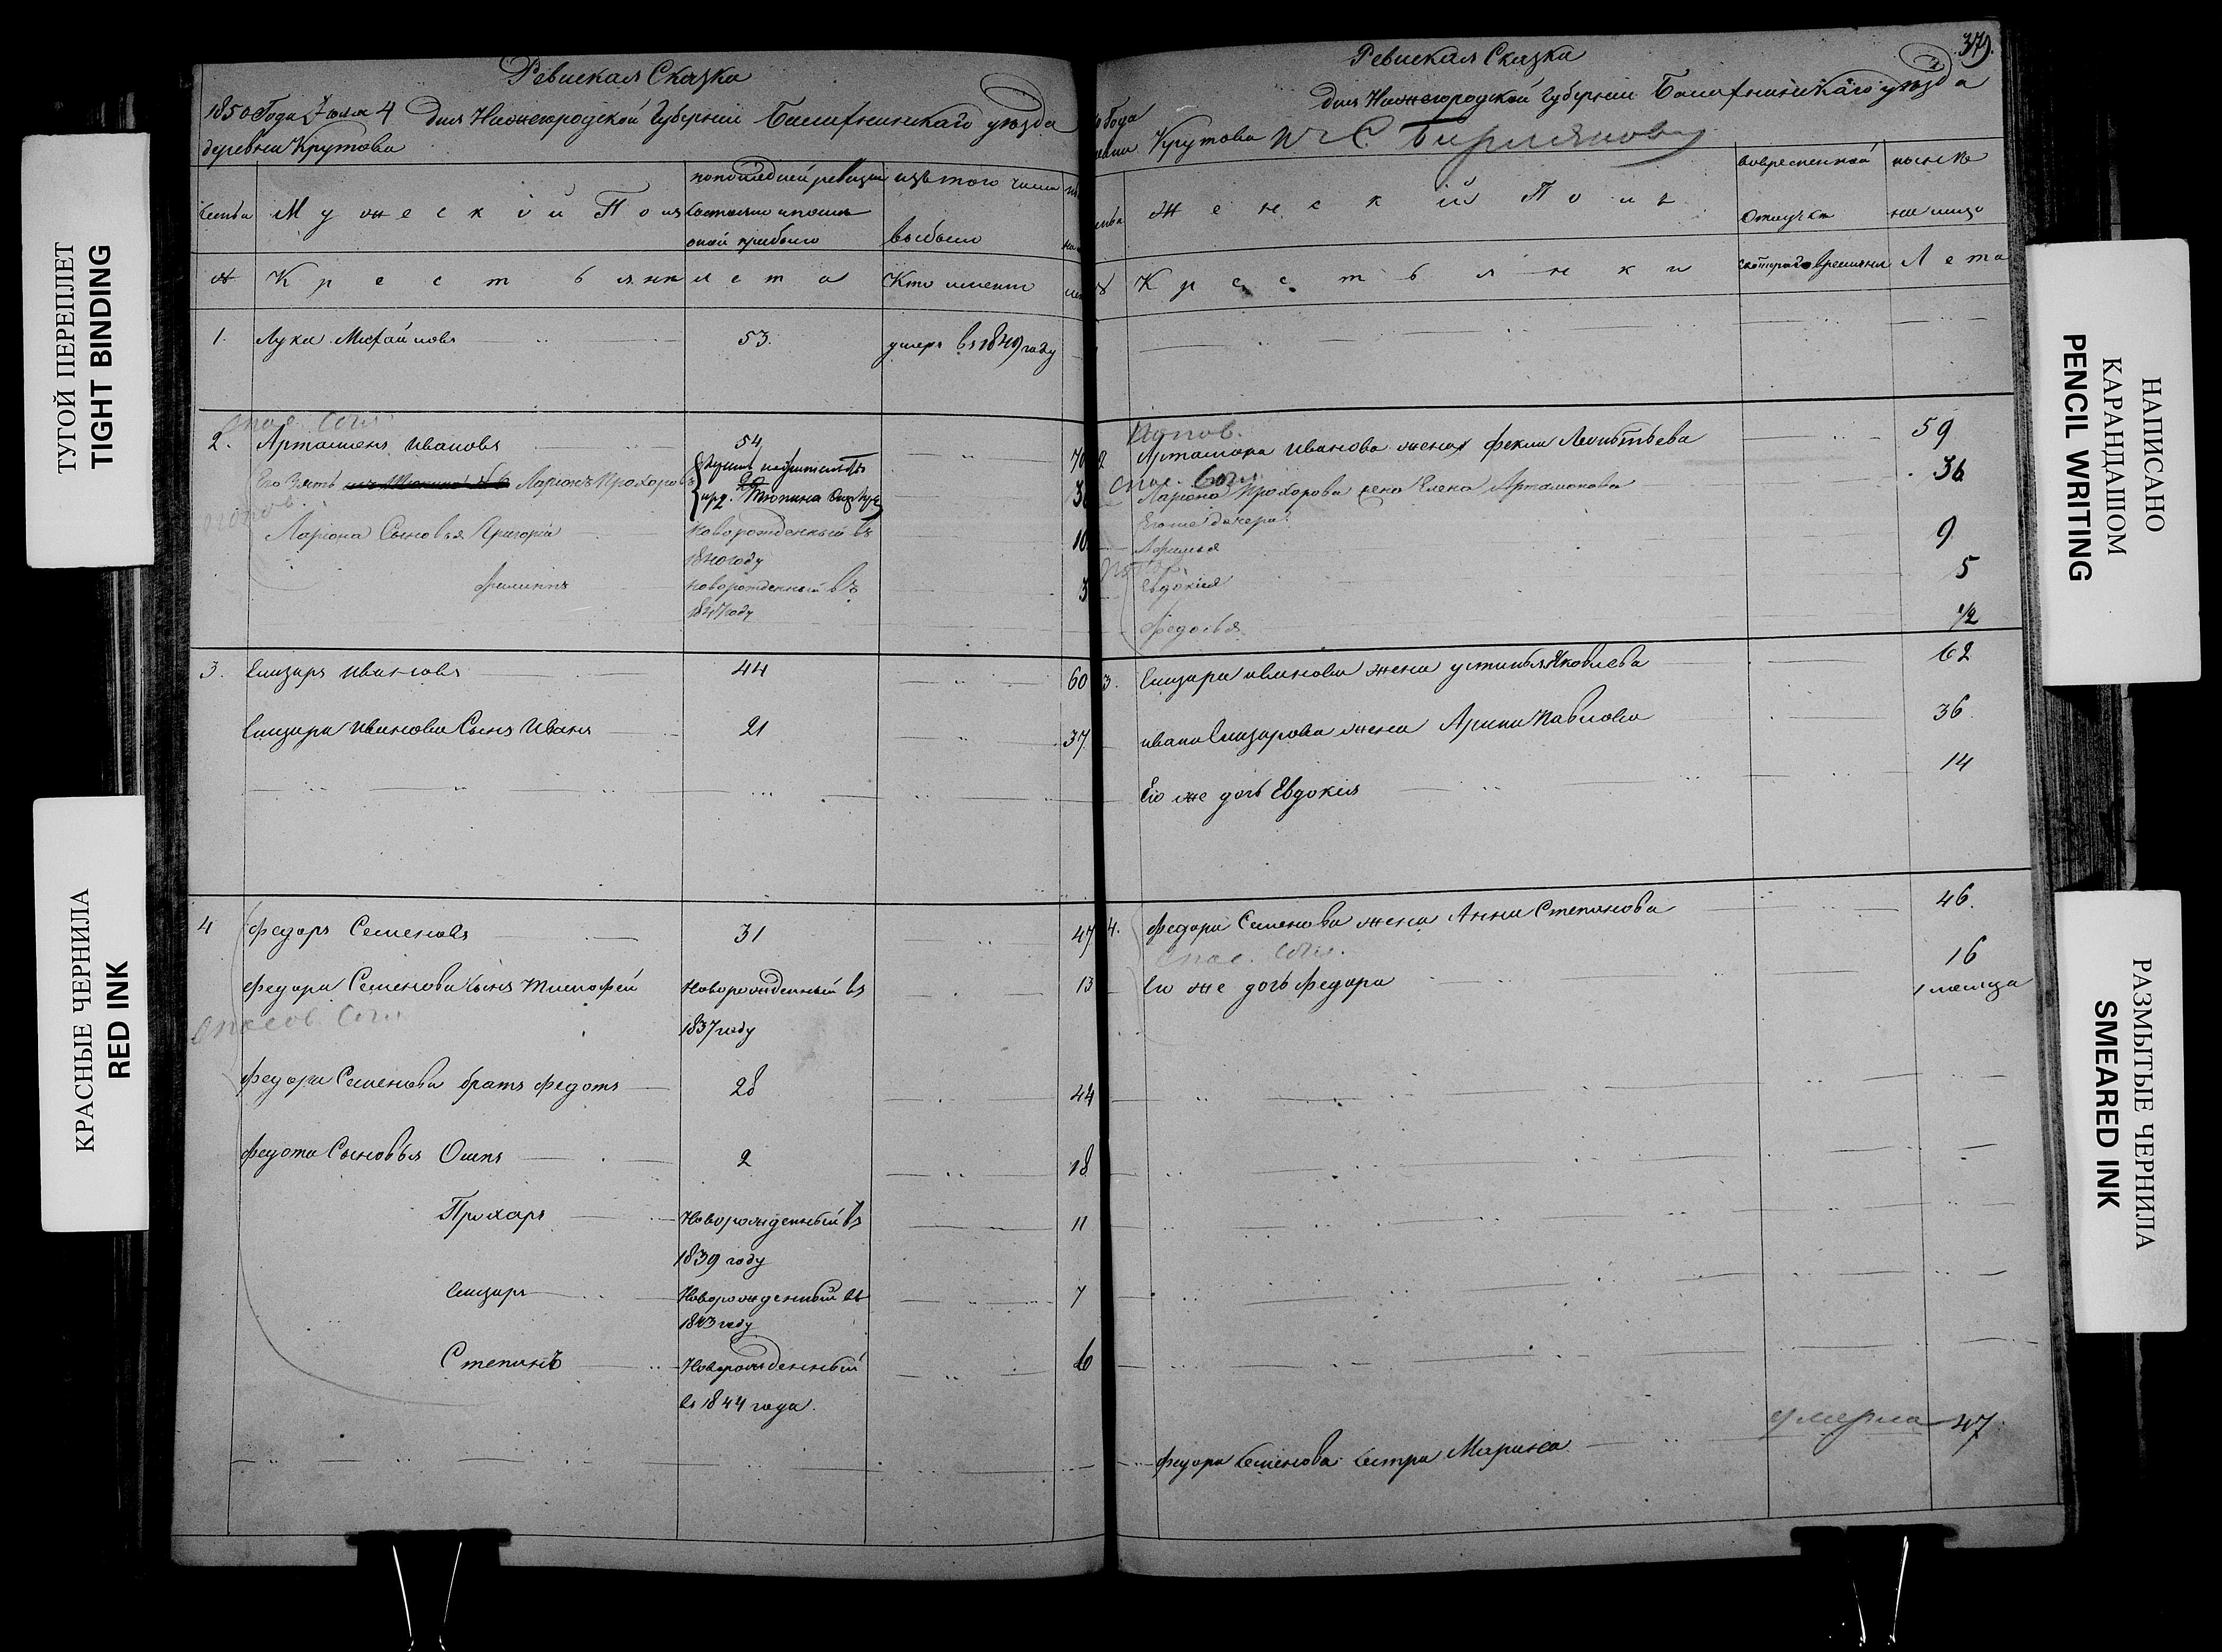 ТУГОЙ ПЕРЕПЛЕТ
TIGHT BINDING
КРАСНЫЕ ЧЕРНИЛА
RED INK
Ревиская Сказка
1850 Года Июля 4 дня Нижегородской Губернии Балахнинскаго уезда
деревни Крутова
семьи Мужеской Полъ
попоследней ревизіи состояло и после оной прибыло
изъ того числа выбыло
№ Крестьяне
лета
Кто именно
1. Лука Михайловъ 53. умеръ въ 1849 году
спас. согл.
2. Артамонъ Ивановъ 54 70
Его Зять Ларіонъ Прохоровъ 3
Ларіона Сыновья Григорій новорожденный въ 1840 году 10
Филиппъ новорожденный въ 1847 году 3
3. Елизаръ Ивановъ 44 60
Елизара Иванова Сынъ Иванъ 21 37
4 Федоръ Семеновъ 31 47
Федора Семенова Сынъ Тимофей Новорожденный въ 1837 году 13
Спасов. Согл.
Федора Семенова братъ Федотъ 28 44
Федота Сыновья Осипъ 2 18
Прохоръ Новорожденный въ 1839 году 11
Елизаръ Новорожденный въ 1843 году 7
Степанъ Новорожденный въ 1844 года. 6
379.
Ревиская Сказка
дня Нижегородской Губерніи Балахнинскаго уезда
Крутова
Женскій Полъ
вовременной отлучке
ныне на лицо
№ Крестьянки
скотораго времяни
Лета
Попов.
2 Артамона Иванова жена Фекла Леонтьева 59
спас. Согл.
Ларіона Прохорова жена Елена Артамонова 36
Егоже дочери
Афимья 9
Евдокія 5
Федосья 1/2
3. Елизара Иванова жена Устинья Яковлева 62
Ивана Елизарова жена Арина Павлова 36
Его же дочь Евдокія 14
4. Федора Семенова жена Анна Степанова 46.
Спас. Согл.
Его же дочь Федора 16
1 месяца
Федора Семенова Сестра Марина умерла 47.
НАПИСАНО
КАРАНДАШОМ
PENCIL WRITING
РАЗМЫТЫЕ ЧЕРНИЛА
SMEARED INK